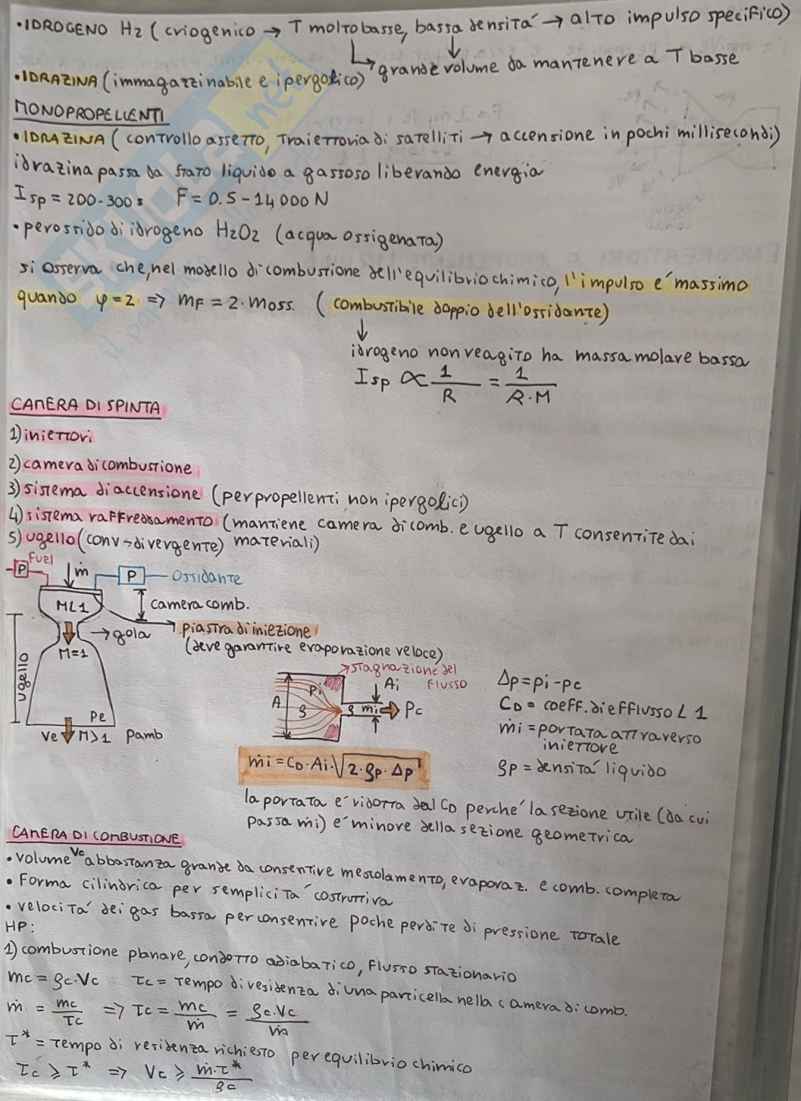 •IDROGENO H2 (criogenico → T molto basse, bassa densitá → alto impulso specifico)
→ grande volume da mantenere a T basse
•IDRAZINA (immagazzinabile e ipergolico)
MONOPROPELLENTI
•IDRAZINA (controllo assetto, traiettoria di satelliti → accensione in pochi millisecondi)
idrazina passa da stato liquido a gassoso liberando energia
Isp = 200-300s F = 0.5 - 14000 N
• perossido di idrogeno H2O2 (acqua ossigenata)
si osserva che, nel modello di combustione dell'equilibrio chimico, l'impulso é massimo
quando φ=2 => mF = 2·moss. (combustibile doppio dell'ossidante)
↓
idrogeno non reagito ha massa molare bassa
Isp ∝ 1/R = 1/R·M
CAMERA DI SPINTA
1) iniettori
2) camera di combustione
3) sistema di accensione (per propellenti non ipergolici)
4) sistema raffreddamento (mantiene camera di comb. e ugello a T consentite dai
5) ugello (conv→divergente) materiali)
Fuel
P ṁ P Ossidante
M<1 camera comb.
→ gola piastra di iniezione
M=1 (deve garantire evaporazione veloce)
ugello
Pe
Ve M>1 Pamb
stagnazione del
flusso
A pi ρ Ai ρ ṁi Pc
Δp = pi - pc
CD = coeff. di efflusso < 1
ṁi = portata attraverso
iniettore
ρp = densitá liquido
ṁi = CD·Ai·√2·ρp·Δp
la portata é ridotta dal CD perché la sezione utile (da cui
passa ṁi) é minore della sezione geometrica
CAMERA DI COMBUSTIONE
• volume Vc abbastanza grande da consentire mescolamento, evaporaz. e comb. completa
• Forma cilindrica per semplicitá costruttiva
• velocitá dei gas bassa per consentire poche perdite di pressione totale
HP:
1) combustione planare, condotto adiabatico, flusso stazionario
mc = ρc·Vc τc = tempo di residenza di una particella nella camera di comb.
ṁ = mc/τc => τc = mc/ṁ = ρc·Vc/ṁ
τ* = tempo di residenza richiesto per equilibrio chimico
τc ≥ τ* => Vc ≥ ṁ·τ*/ρc